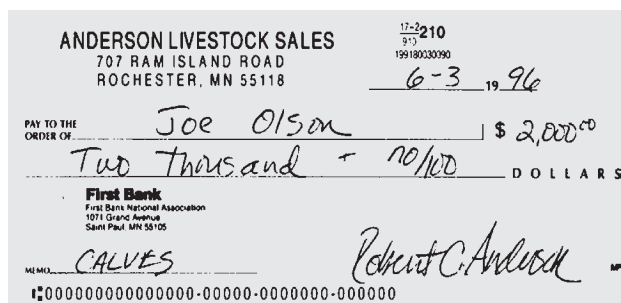 ANDERSON LIVESTOCK SALES
707 RAM ISLAND ROAD
ROCHESTER, MN 55118
17-2 210
910
199180030090
6-3 19 96
PAY TO THE
ORDER OF Joe Olson $ 2,000 00
Two Thousand - no/100 DOLLARS
First Bank
First Bank National Association
1071 Grand Avenue
Saint Paul, MN 55105
MEMO CALVES Robert C. Anderson MP
⑆0000000000000000-00000-0000000-000000